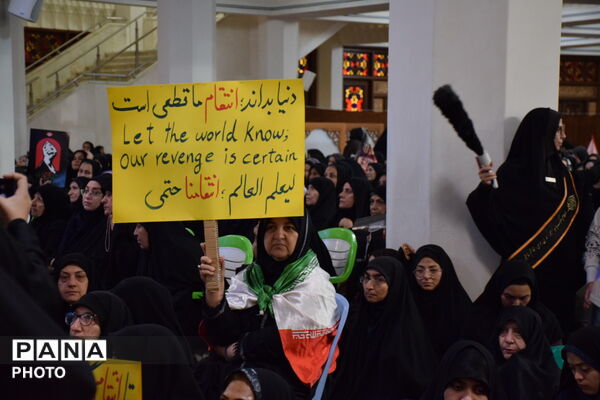 دنیا بداند؛ انتقام ما قطعی است
Let the world know;
our revenge is certain
ليعلم العالم؛ انتقامنا حتمي
انتقام
PANA
PHOTO